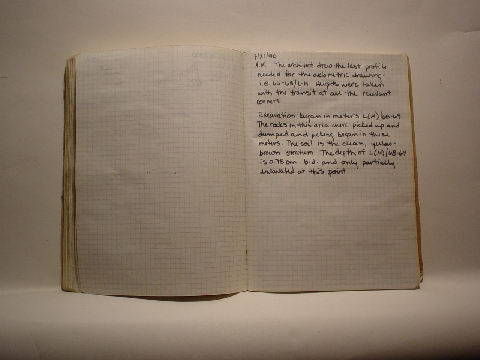 7/31/90
A.M. The architect drew the last profile
needed for the axonometric drawing.
i.e. 66-68/L-M. Heights were taken
with the transit at all the relevant
corners.
Excavation began in meters L(M)/68-69.
The rocks in this area were picked up and
dumped and picking began in these
meters. The soil is the clean, yellow-
brown stratum. The depth of L(M)/68-69
is 0.75 cm. b.d. and only partially
excavated at this point.